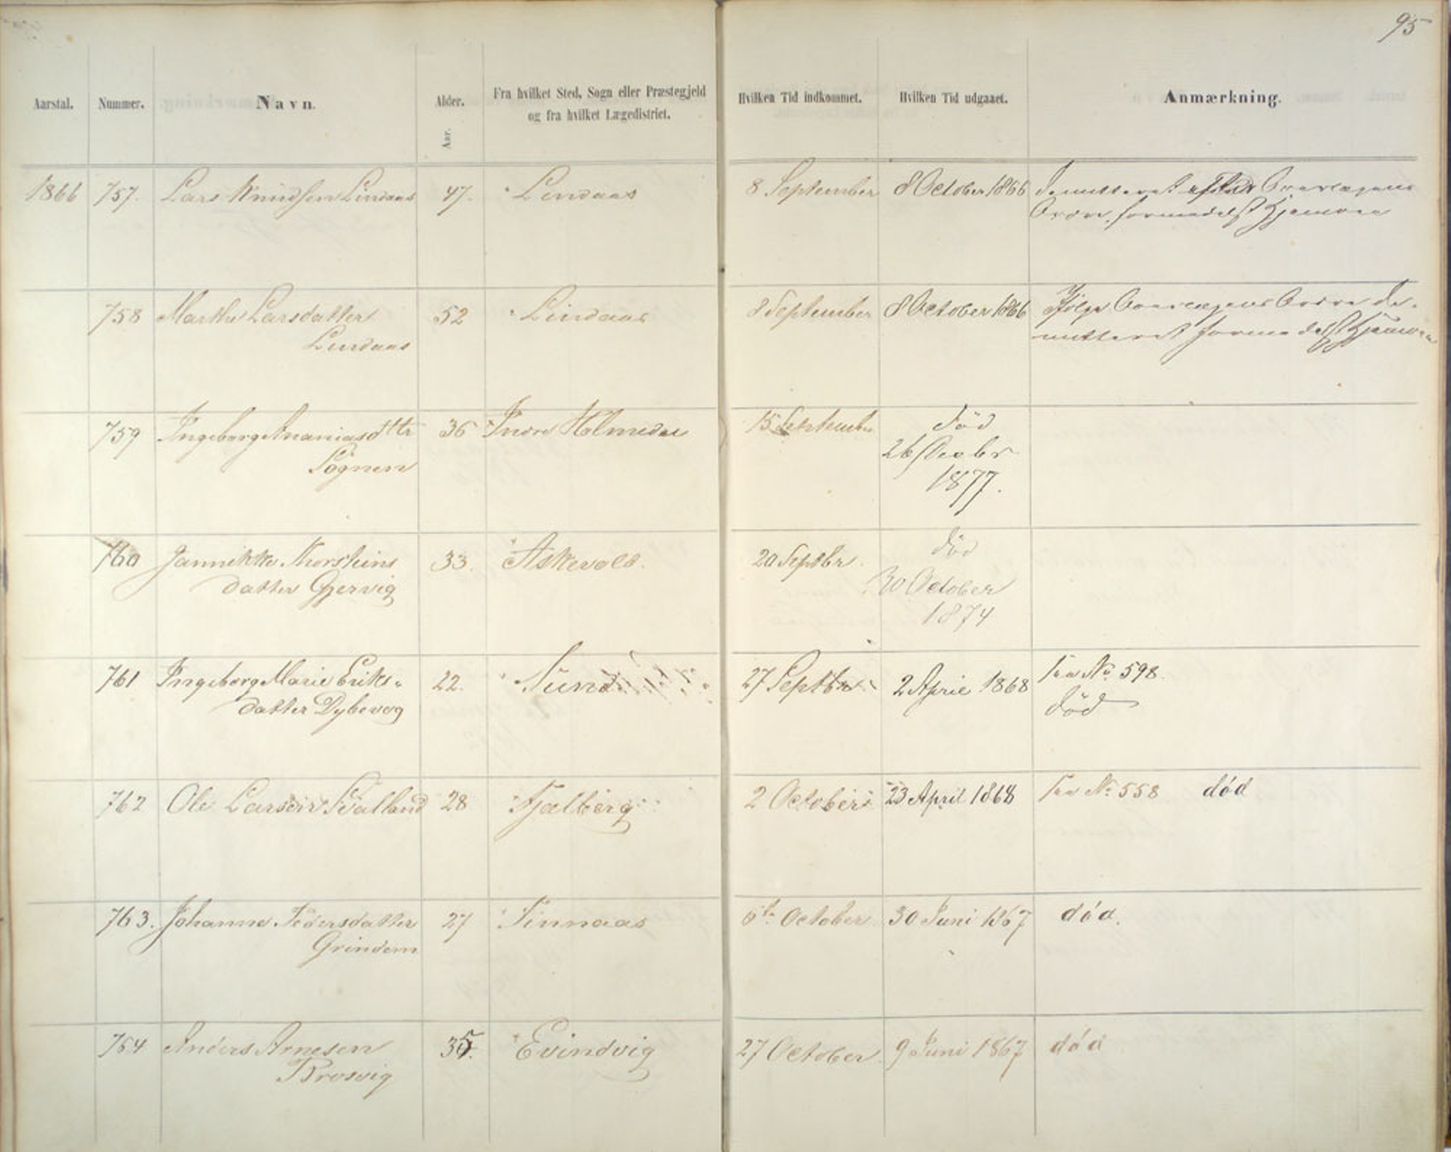 95
Aarstal.
Nummer.
Navn.
Alder.
Aar.
Fra hvilket Sted, Sogn eller Præstegjeld
og fra hvilket Lægedistrict.
Hvilken Tid indkommet.
Hvilken Tid udgaaet.
Anmærkning.
1866 757. Lars Knudsen Lindaas 47. Lindaas 8 September 8 October 1866 demitteret efter Overlægens
Ordre, formedelst Hjemvee
758 Marthe Larsdatter 52 Lindaas 8 September 8 October 1866 Ifølge Overlægens Ordre de-
Lindaas mitteret formedelst Hjemvee
759 Ingeborg Ananiasdttr 36 Indre Holmedal 15 September død
Sognen 26 Decbr
1877.
760 Jannikke Thorsteins 33. Askevold. 20 Septbr. død
datter Gjervig 30 October
1874
761 Ingeborg Marie Eriks- 22. Sund 27 Septbr 2 April 1868 Fra No 598.
datter Dybevog død
762 Ole Larsen Svalland 28 Fjelberg 2 October 23 April 1868 Fra No 558 død
763. Johanne Pedersdatter 27 Finnaas 6te October 30 Juni 1867 død.
Grindem
764 Anders Arnesen 35. Evindvig 27 October. 9 Juni 1867 død
Brosvig